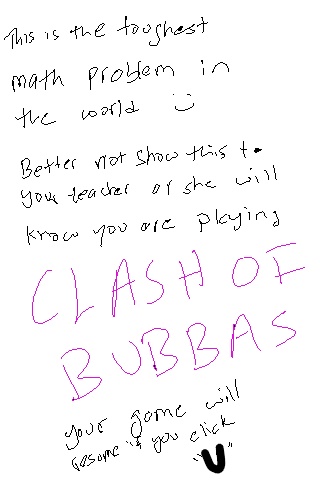 This is the toughest
math problem in
the world :)
Better not show this to
your teacher or she will
know you are playing
CLASH OF
BUBBAS
your game will
resume if you click
"U"